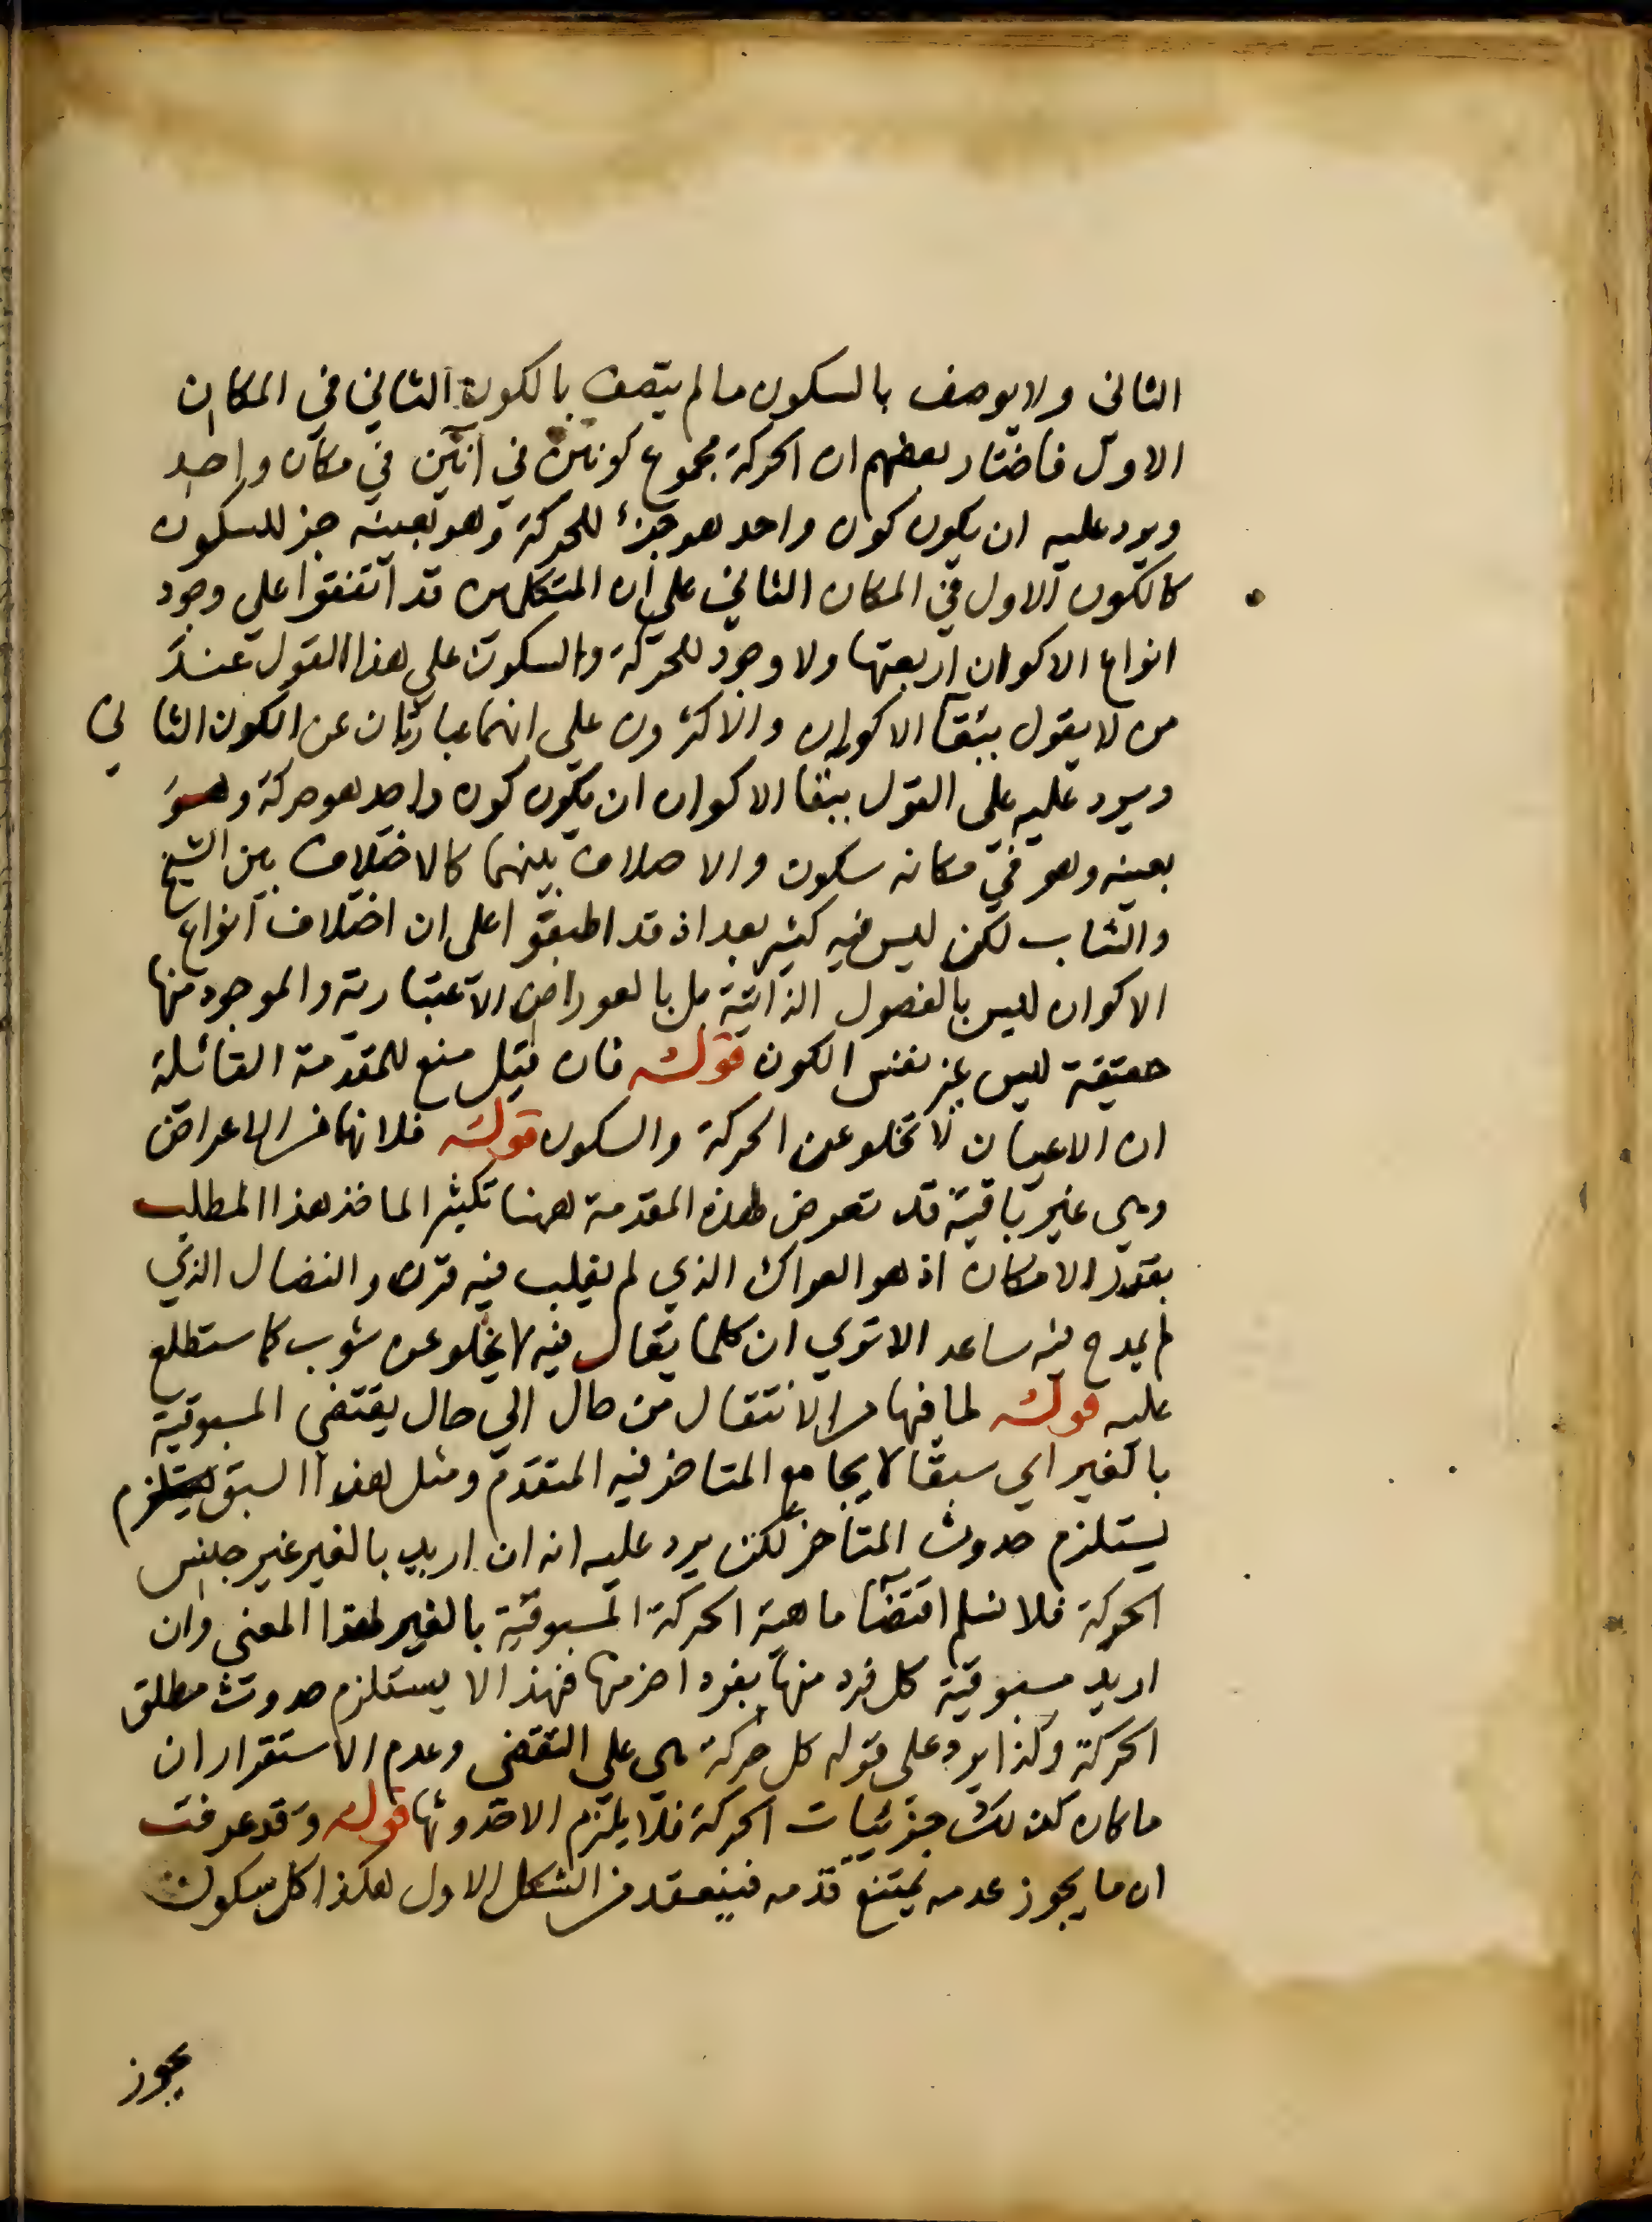 الثانى ولا يوصف بالسكون ما لم يتصف بالكون الثاني في المكان
الاول فاختار بعضهم ان الحركة مجموع كونين في انين في مكان واحد
ويرد عليه ان يكون كون واحد هو جزء للحركة وهو بعينه جز للسكون
كالكون الاول في المكان الثاني على ان المتكلمين قد اتفقوا على وجود
انواع الاكوان اربعتها ولا وجود للحركة والسكون على هذا القول عند
من لا يقول ببقآ الاكوان والاكثرون على انهما عبارتان عن الكون الثاني
ويرد عليه على القول ببقا الاكوان ان يكون كون واحد هو حركة وهو
بعينه وهو في مكانه سكون والاختلاف بينهما كالاختلاف بين الشيخ
والشاب لكن ليس فيه كثير بعد اذ قد اطبقوا على ان اختلاف انواع
الاكوان ليس بالفصول الذاتية بل بالعوراض الاعتبارية والموجود منها
حقيقة ليس غير نفس الكون قوله فان قيل منع للمقدمة القائلة
ان الاعيان لا تخلو عن الحركة والسكون قوله فلانها من الاعراض
وهي غير باقية قد تعرض لهذه المقدمة ههنا تكثيرا لماخذ هذا المطلب
بقدر الامكان اذ هو العراك الذي لم يغلب فيه قرن والنضال الذي
لم يمدح فيه ساعد الا تري ان كلما يقال فيه لا يخلو عن شوب كما ستطلع
عليه قوله لما فيها من الانتقال من حال الي حال يقتضي المسبوقية
بالغير اي سبقا لا يجامع المتاخر فيه المتقدم ومثل هذا السبق يستلزم
يستلزم حدوث المتاخر لكن يرد عليه انه ان اريد بالغير غير جنس
الحركة فلا نسلم اقتضآ ماهية الحركة المسبوقية بالغير لهذا المعنى وان
اريد مسبوقية كل فرد منها بفرد اخر منها فهذا لا يستلزم حدوث مطلق
الحركة وكذا يرد على قوله كل حركة هي على التقضي وعدم الاستقرار ان
ما كان كذلك جزئيات الحركة فلا يلزم الا حدوثها قوله وقد عرفت
ان ما يجوز عدمه يمتنع قدمه فينعقد من الشكل الاول هكذا كل سكون
يجوز